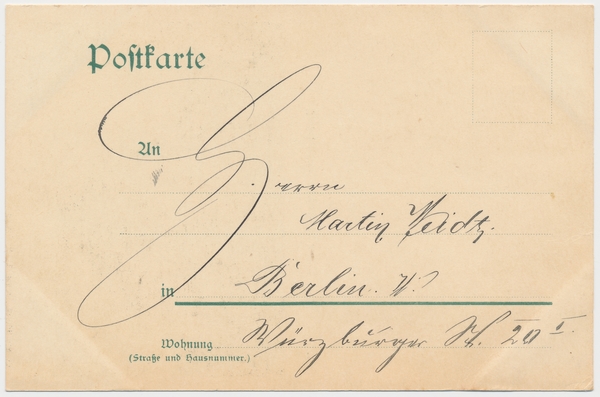 Postkarte
An
Herrn
Martin Weidt.
in Berlin. W.
Wohnung Würzburger St. 20 I.
(Straße und Hausnummer.)